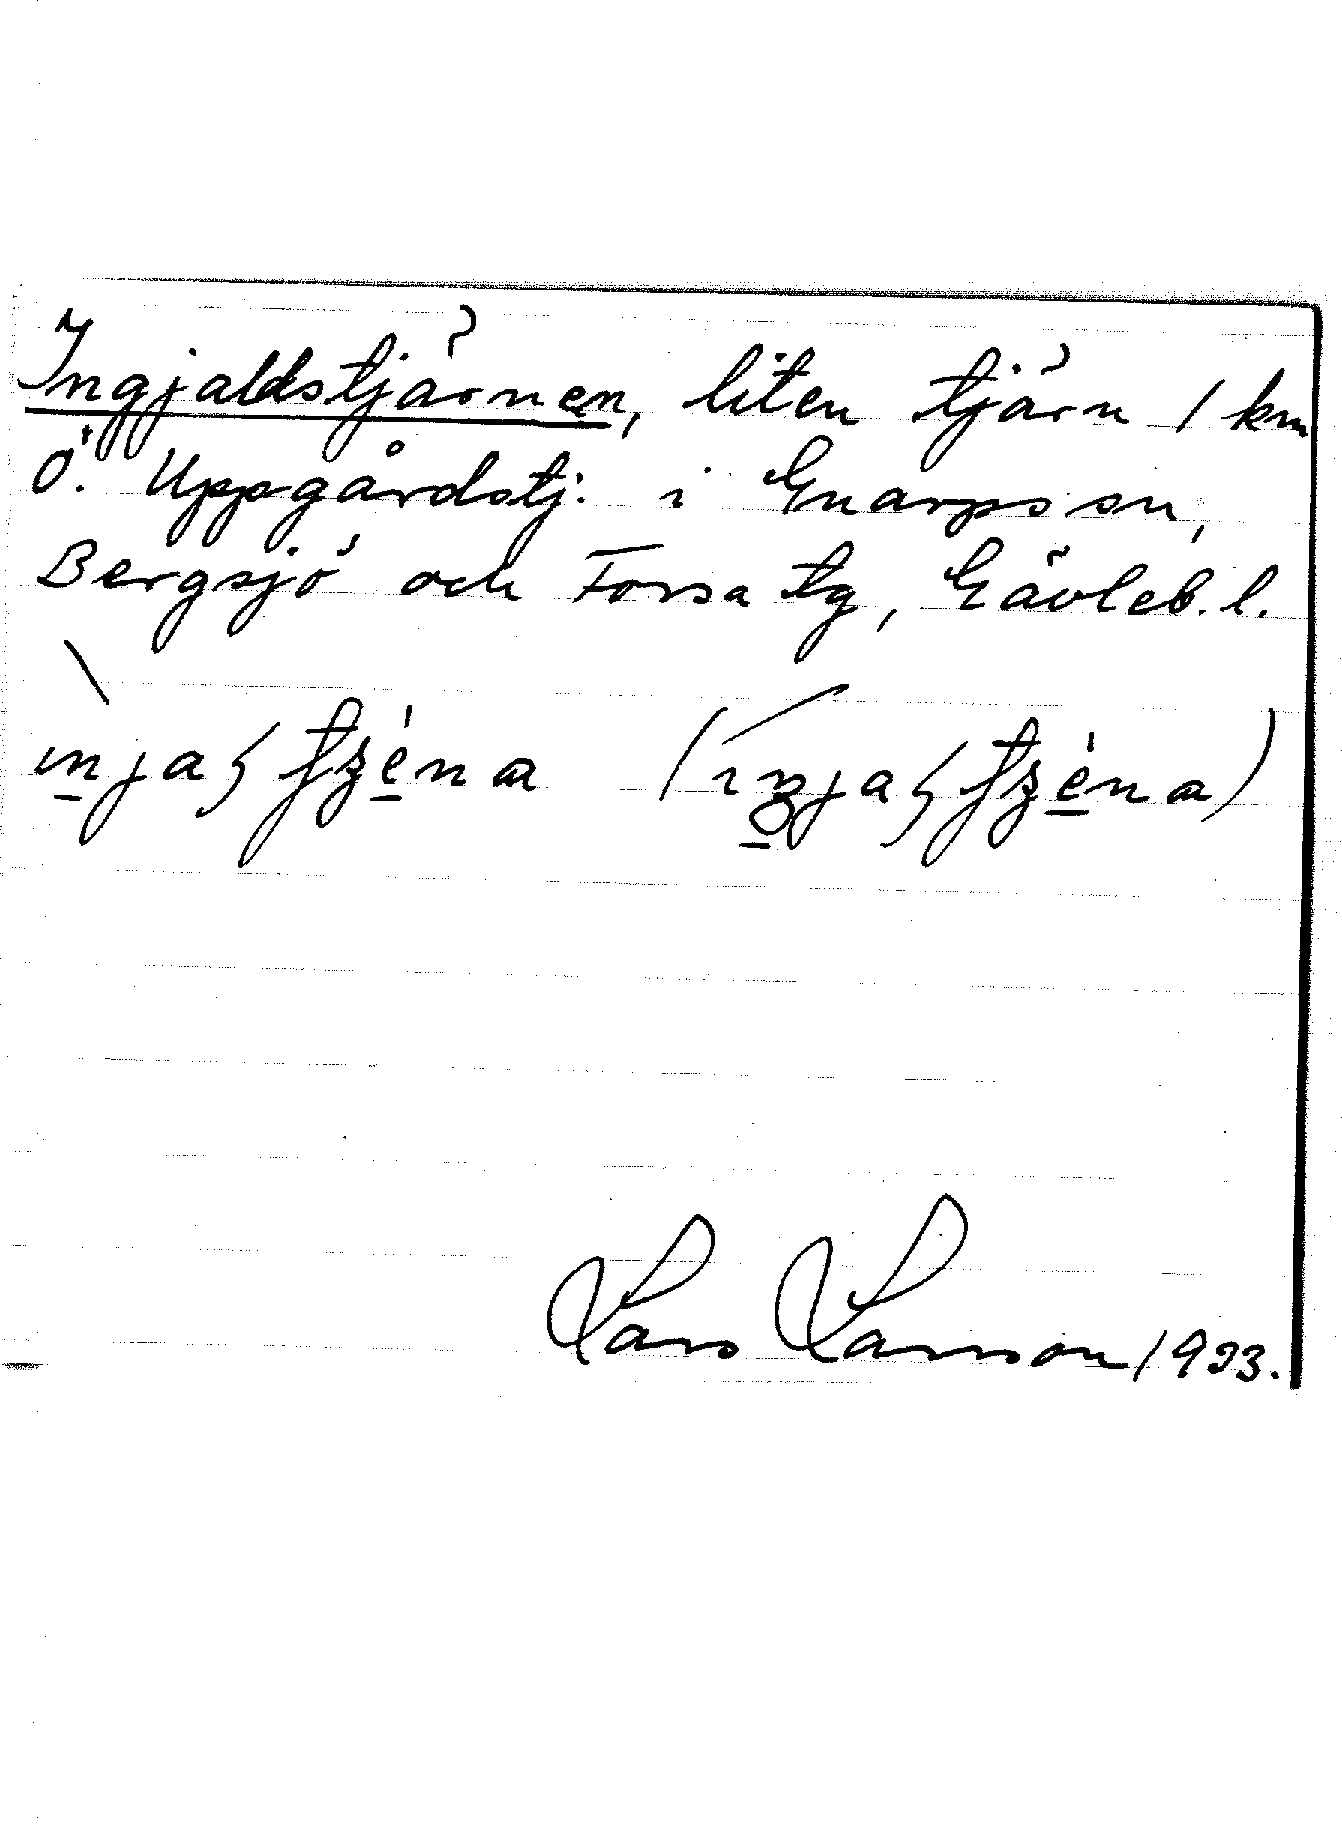 Ingjaldstjärnen, liten tjärn 1 km
Ö. Uppgårdstj. i Gnarps sn,
Bergsjö och Forsa tg, Gävleb. l.
Lars Larsson 1933.